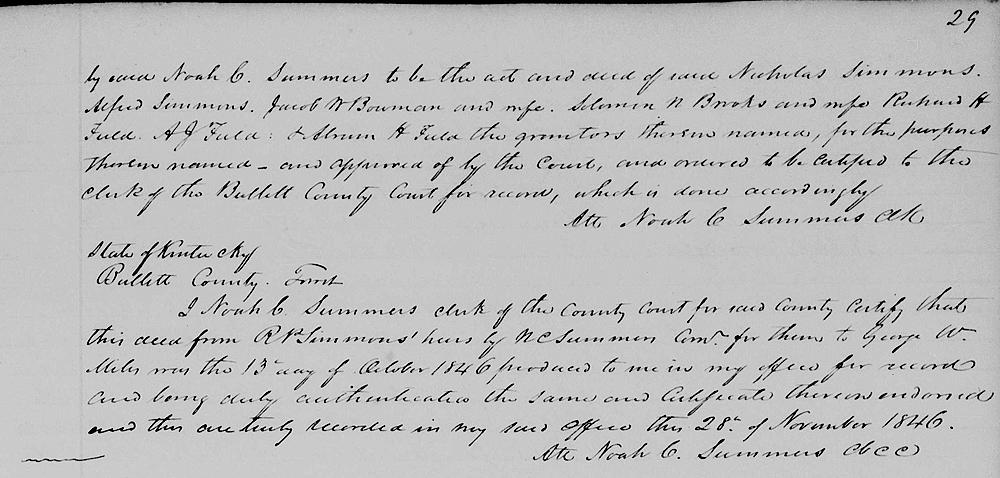 29
by said Noah C. Summers to be the act and deed of said Nicholas Simmons.
Alfred Simmons. Jacob W Bowman and wife. Solomon N Brooks and wife Richard H
Field. A J Field: & Abram H Field the grantors therein named, for the purposes
therein named - and approved of by the Court, and ordered to be certified to the
clerk of the Bullett County Court for record, which is done accordingly
Att Noah C Summers Clk
State of Kentucky
Bullett County. Sct
I Noah C Summers clerk of the County Court for said County Certify that
this deed from R P Simmons' heirs by N C Summers Comr. for them to George W.
Miles was the 13th day of October 1846 produced to me in my office for record
and being duly authenticated the same and Certificate thereon endorsed
and this are truly recorded in my said office this 28th of November 1846.
Att Noah C. Summers CBCC